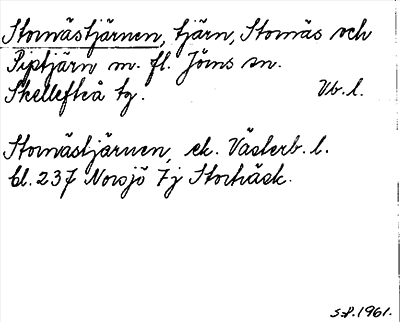 Stornästjärnen, tjärn, Stornäs och
Piptjärn m. fl. Jörns sn.
Skellefteå tg. Vb. l.
Stornästjärnen, ek. Västerb. l.
bl. 237 Norsjö 7j Storträsk.
S.P. 1961.